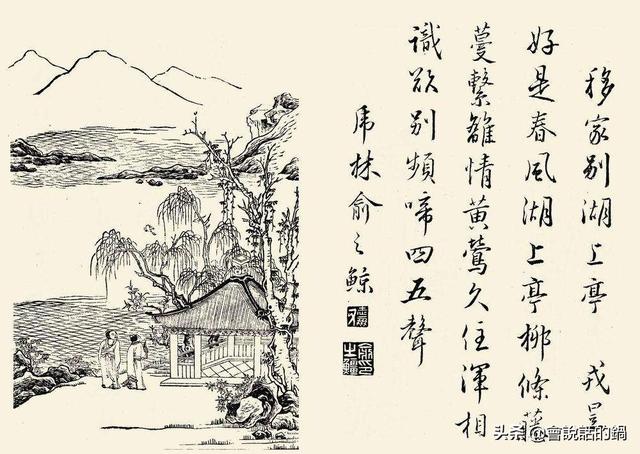 移家别湖上亭 戎昱
好是春風湖上亭柳條藤
蔓繫離情黄鶯久住渾相
識欲别頻啼四五聲
虎林俞之鯨
头条@會說話的鍋